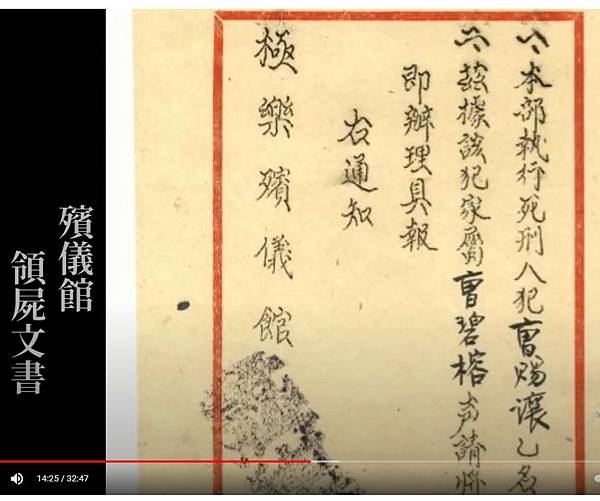 殯儀館
領屍文書
八、本部執行死刑人犯曹賜讓乙名
六、茲據該犯家屬曹碧榕声請將
即辦理具報
右通知
極樂殯儀館
14:25 / 32:47